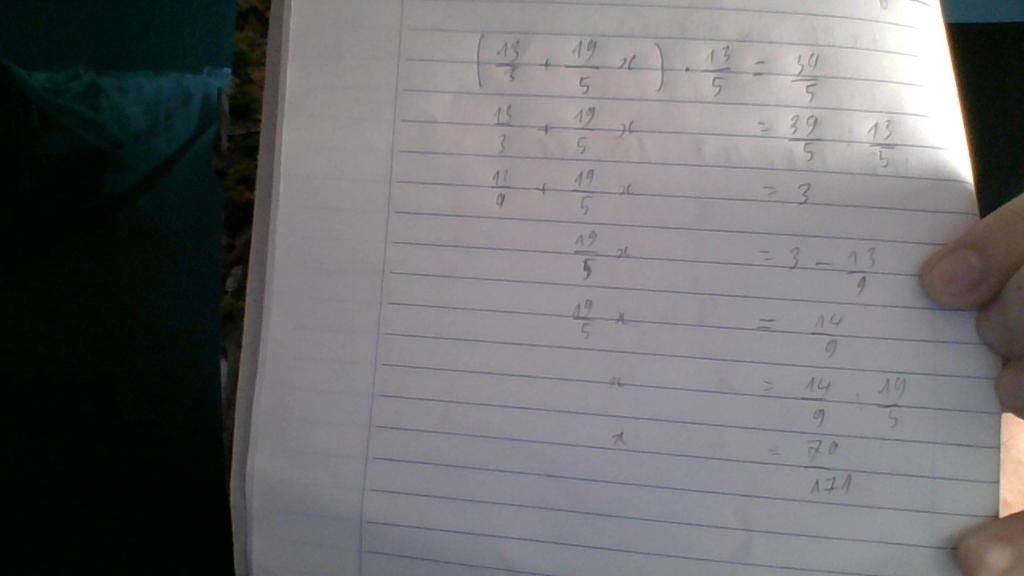 (13/3 + 19/5 x) · 13/5 = 39/5
13/3 + 19/5 x = 39/5 : 13/5
13/9 + 19/5 x = 3
19/5 x = 3 - 13/9
19/5 x = 14/9
x = 14/9 : 19/5
x = 70/171